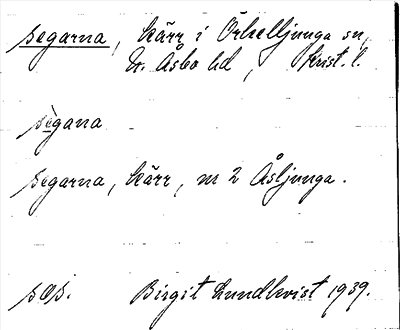 segarna, kärr i Örkelljunga sn,
N. Åsbo hd, Krist. l.
sègana
segarna, kärr, nr 2 Åsljunga.
sgs. Birgit Lundkvist 1939.